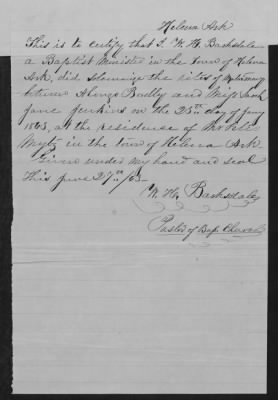 Helena Ark
This is to certify that I W. H. Barksdale
a Baptist Minister in the town of Helena
Ark, did Solemnize the rites of Matrimony
between Alonzo and Miss Sarah
Jane Jenkins on the 25th day of Jany
1865, at the residence of Mr
in the town of Helena Ark.
Given under my hand and seal
This June 27th /65
W. H. Barksdale
Pastor of Bap. Church